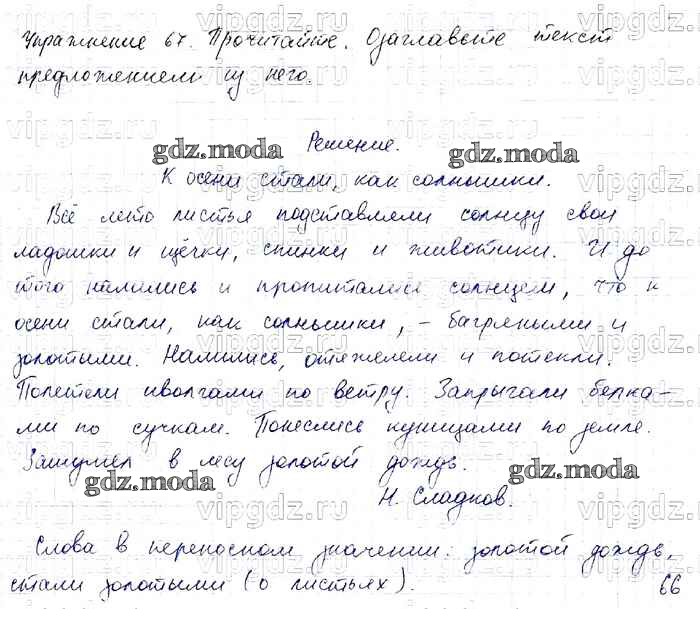 Упражнение 67. Прочитайте. Озаглавьте текст
предложением из него.
Решение.
gdz.moda
gdz.moda
К осени стали, как солнышки.
Всё лето листья подставляли солнцу свои
ладошки и щёчки, спинки и животики. И до
того налились и пропитались солнцем, что к
осени стали, как солнышки, - багряными и
золотыми. Налились, отяжелели и потекли.
Полетели иволгами по ветру. Запрыгали белка-
ми по сучкам. Понеслись куницами по земле.
Зашумел в лесу золотой дождь.
gdz.moda
gdz.moda
Н. Сладков.
Слова в переносном значении: золотой дождь,
стали золотыми (о листьях).
66